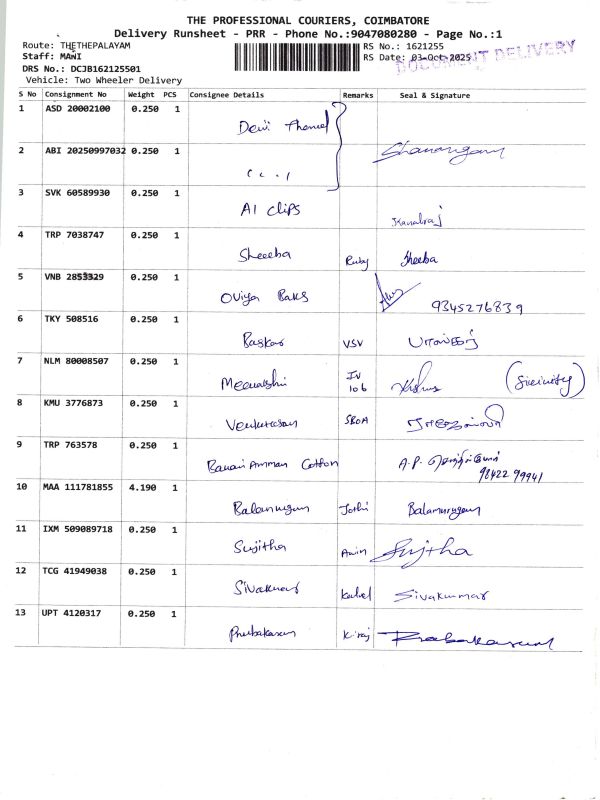 THE PROFESSIONAL COURIERS, COIMBATORE
Delivery Runsheet - PRR - Phone No.:9047080280 - Page No.:1
Route: THETHEPALAYAM
RS No.: 1621255
Staff: MANI
RS Date: 03-Oct-2025
DOCUMENT DELIVERY
DRS No.: DCJB162125501
Vehicle: Two Wheeler Delivery
S No Consignment No Weight PCS Consignee Details Remarks Seal & Signature
1 ASD 20002100 0.250 1 Devi
2 ABI 20250997032 0.250 1 Shanmugam
3 SVK 60589930 0.250 1 AI clips Kanalraj
4 TRP 7038747 0.250 1 Sheeba Ruby Sheeba
5 VNB 2853329 0.250 1 Oviya Baks 9345276839
6 TKY 508516 0.250 1 Baskar VSV
7 NLM 80008507 0.250 1 Meenakshi IV 106
8 KMU 3776873 0.250 1 Venkatesan SBOA
9 TRP 763578 0.250 1 Bannari Amman Cotton A.P. 98422 99941
10 MAA 111781855 4.190 1 Balamurugan Jothi Balamurugan
11 IXM 509089718 0.250 1 Sujitha Sujitha
12 TCG 41949038 0.250 1 Sivakumar Sivakumar
13 UPT 4120317 0.250 1 Prabakaran Kiraj Prabakaran